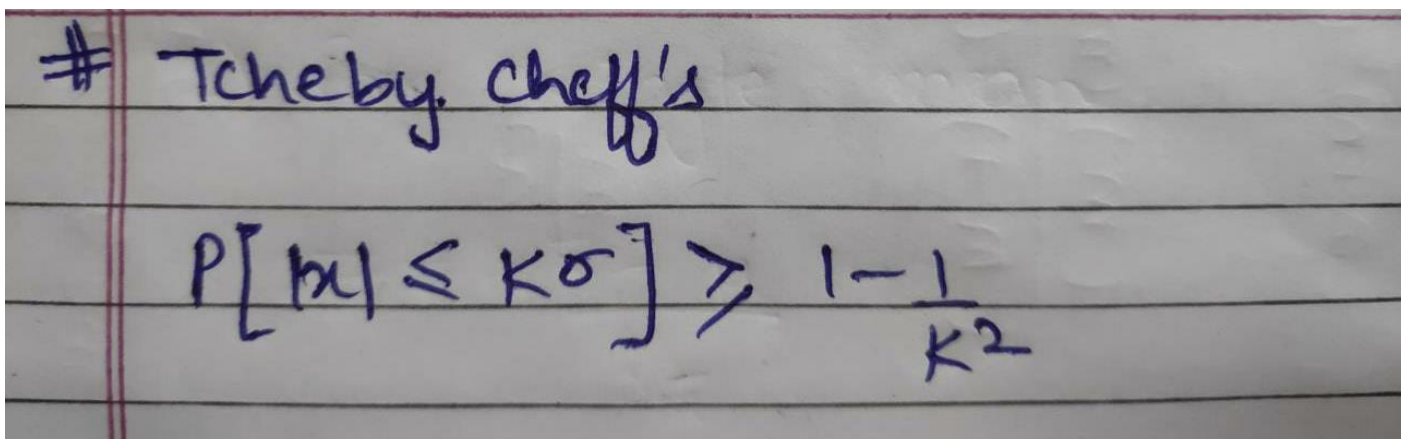 # Tcheby. cheff's
P[|x| ≤ Kσ] ≥ 1 - 1/K²